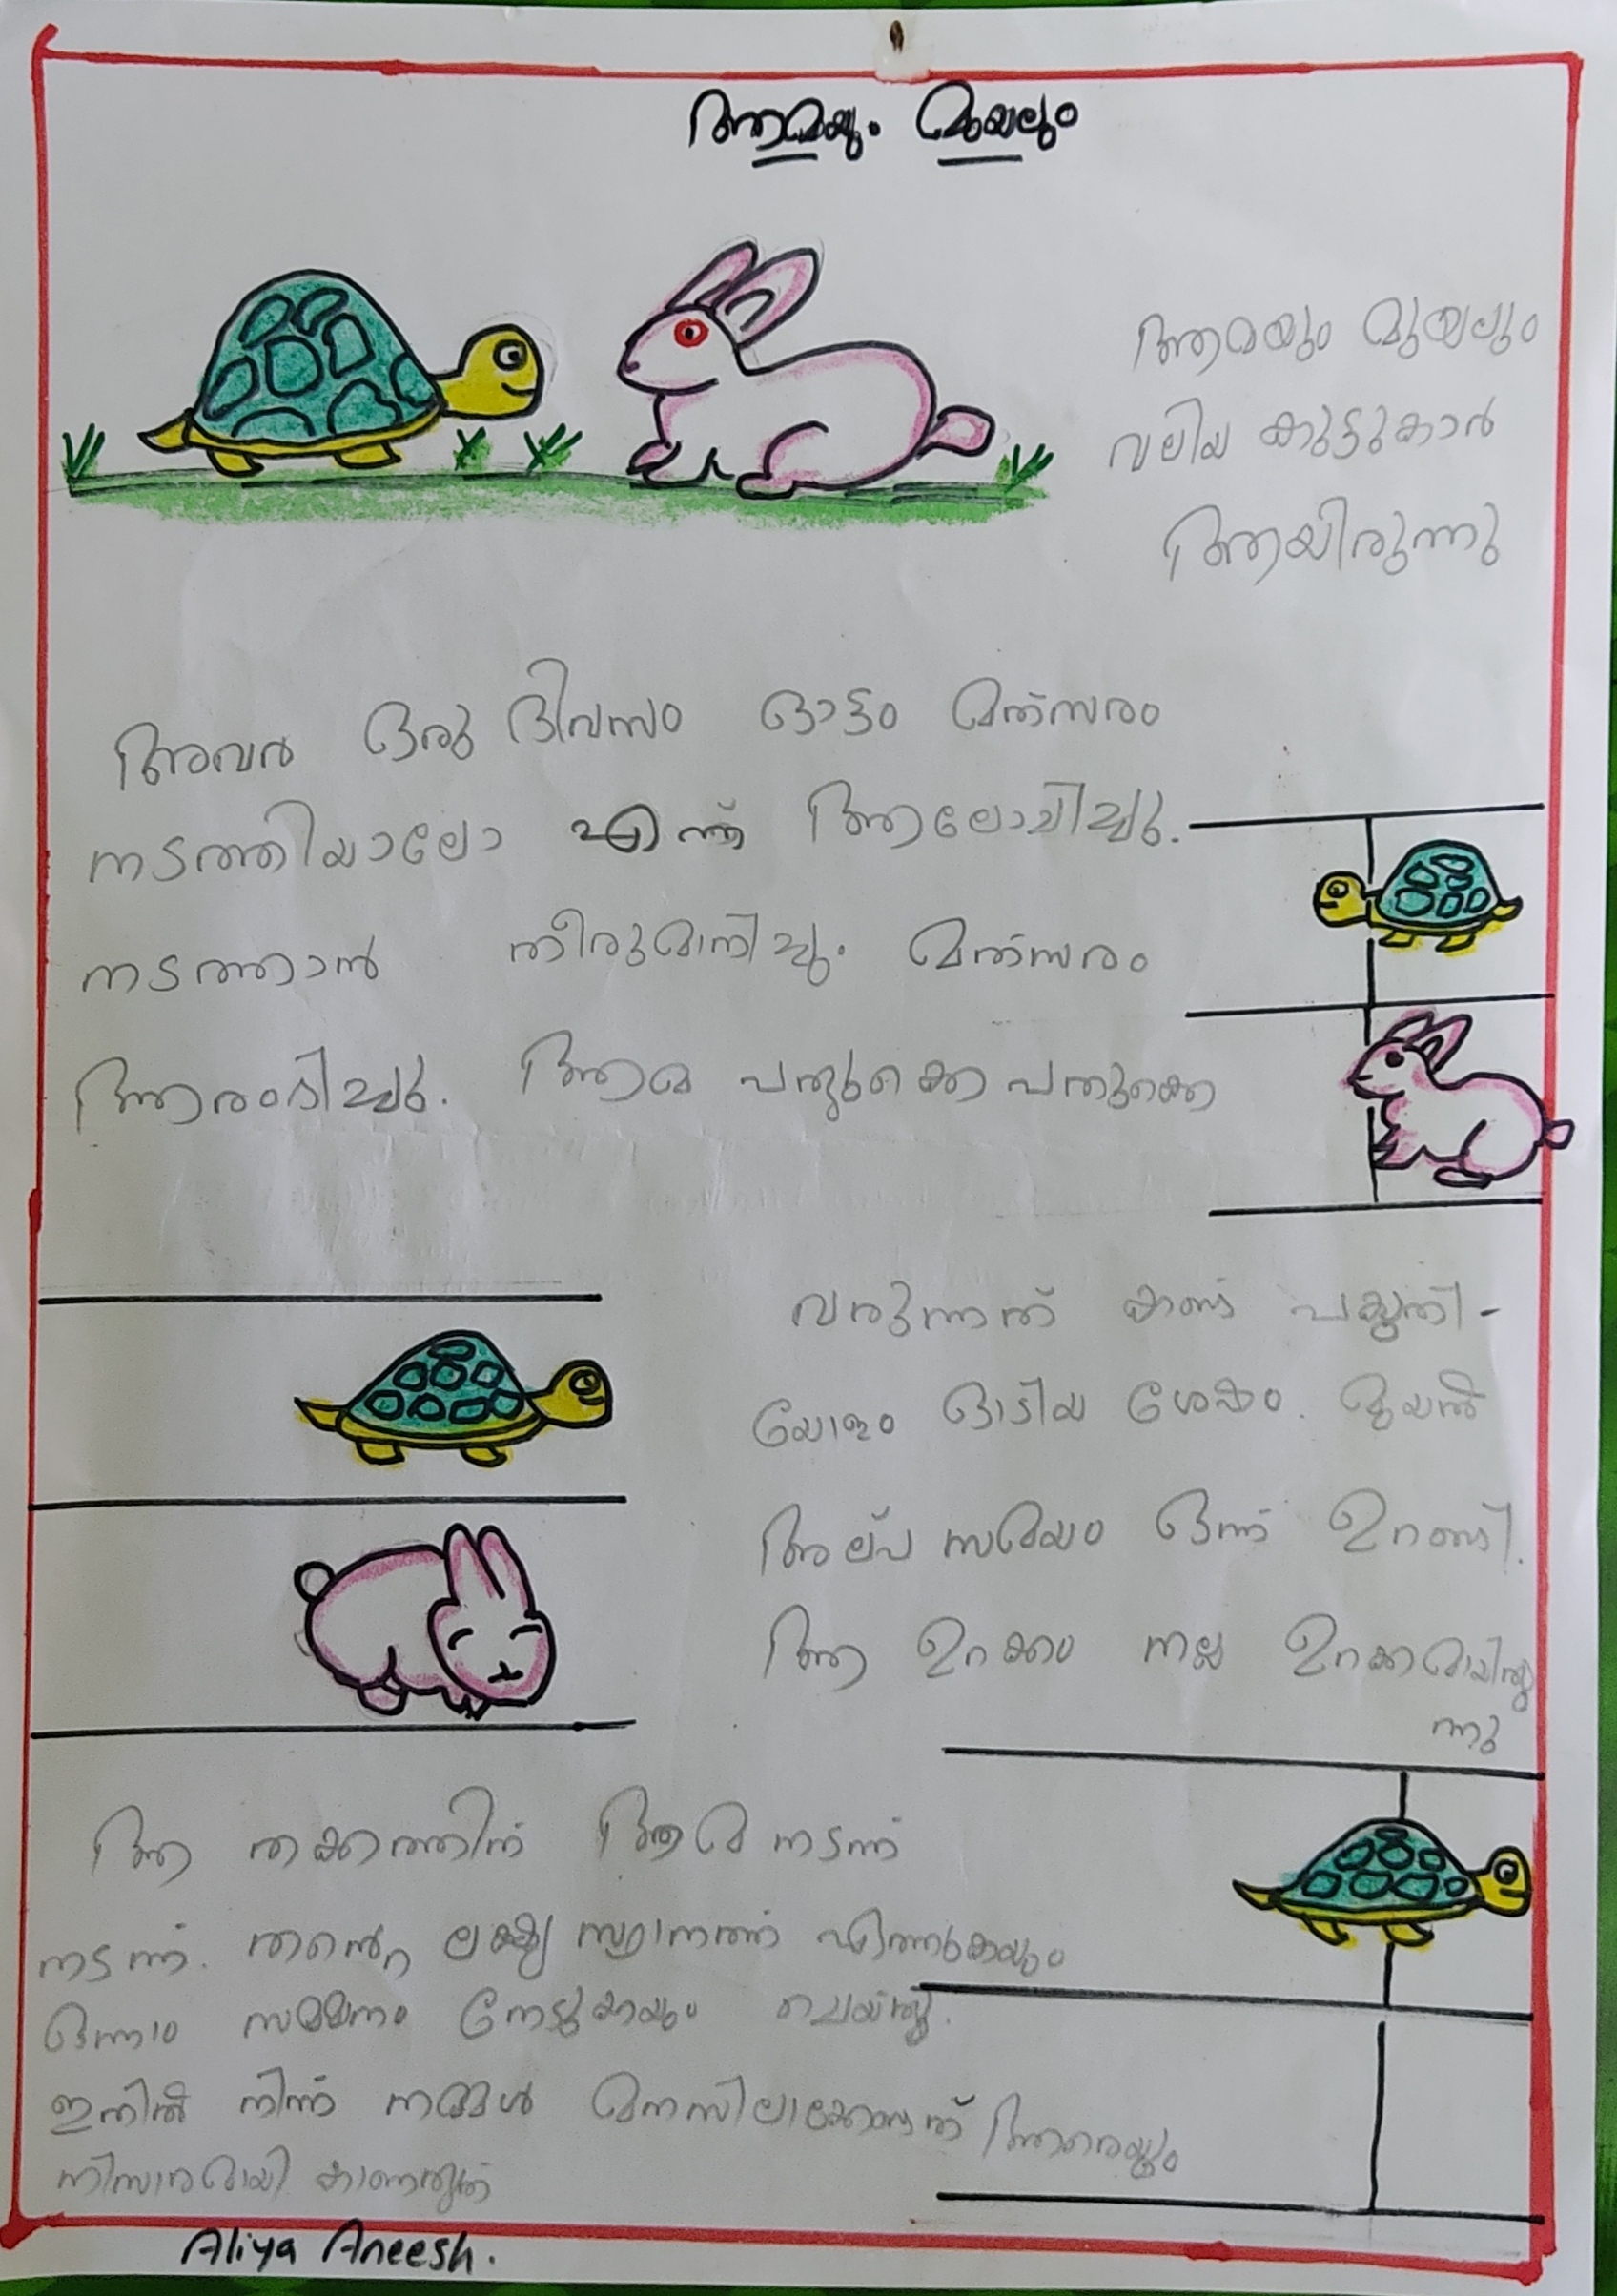 ആമയും മുയലും
ആമയും മുയലും
വലിയ കുട്ടുകാർ
ആയിരുന്നു
അവർ ഒരു ദിവസം ഓട്ടം മത്സരം
നടത്തിയാലോ എന്ന് ആലോചിച്ചു.
നടത്താൻ തീരുമാനിച്ചു. മത്സരം
ആരംഭിച്ചു. ആമ പതുക്കെ പതുക്കെ
വരുന്നത് കണ്ട് പകുതി-
യോളം ഓടിയ ശേഷം. മുയൽ
അല്പ സമയം ഒന്ന് ഉറങ്ങി.
ആ ഉറക്കം നല്ല ഉറക്കമായിരു
ന്നു
ആ തക്കത്തിന് ആമ നടന്ന്
നടന്ന്. തന്റെ ലക്ഷ്യ സ്ഥാനത്ത് എത്തുകയും
ഒന്നാം സമ്മാനം നേടുകയും ചെയ്തു.
ഇതിൽ നിന്ന് നമ്മൾ മനസിലാക്കേണ്ടത് ആരെയും
നിസാരമായി കാണരുത്
Aliya Aneesh.